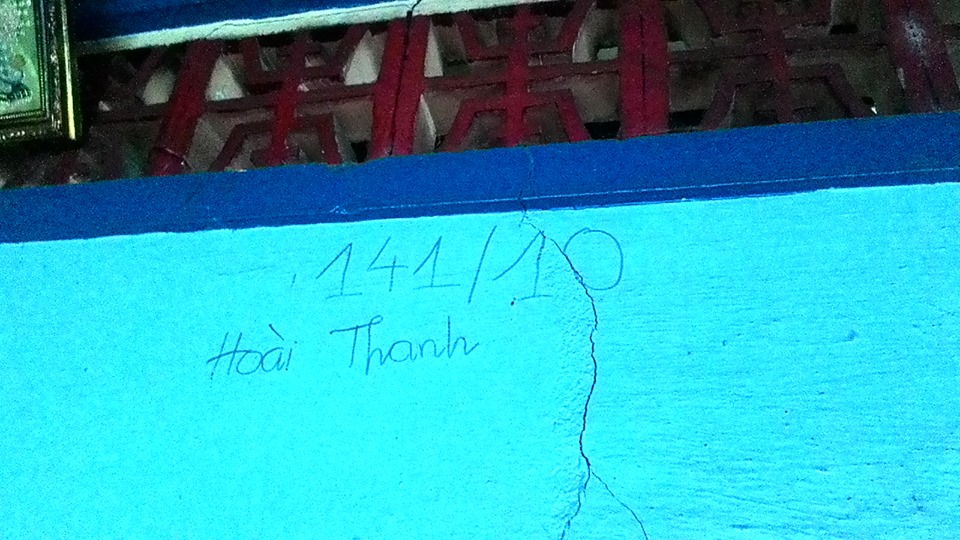 141/10
Hoài Thanh